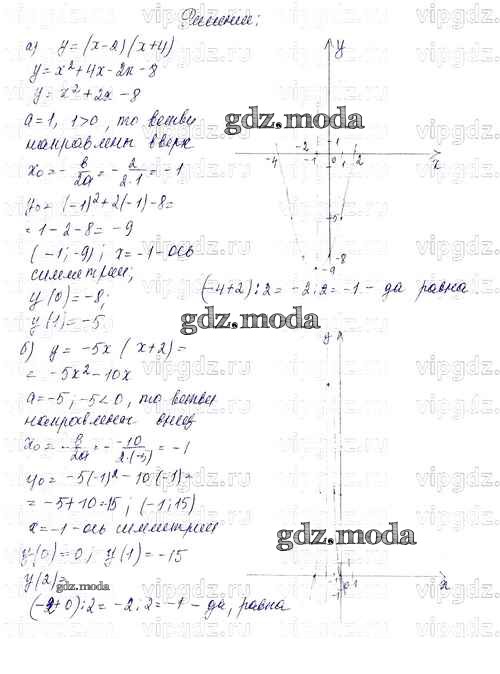 Решение:
а) y = (x-2)(x+4)
y = x² + 4x - 2x - 8
y = x² + 2x - 8
a = 1, 1>0, то ветви
направлены вверх
x₀ = - в/2а = - 2/2·1 = -1
y₀ = (-1)² + 2(-1) - 8 =
= 1 - 2 - 8 = -9
(-1; -9); x = -1 - ось
симметрии;
y(0) = -8;
y(1) = -5
(-4+2):2 = -2:2 = -1 - да равна
б) y = -5x (x+2) =
= -5x² - 10x
a = -5, -5<0, то ветви
направлены вниз
x₀ = - в/2а = - -10/2·(-5) = -1
y₀ = -5(-1)² - 10·(-1) =
= -5+10=15; (-1; 15)
x = -1 - ось симметрии
y(0) = 0; y(1) = -15
y(2) =
(-2+0):2 = -2:2 = -1 - да, равна
y
-4 -2 -1 0 1 2 x
1
-5
-8
-9
y
-1 0 1 x
gdz.moda
gdz.moda
gdz.moda
gdz.moda
vipgdz.ru